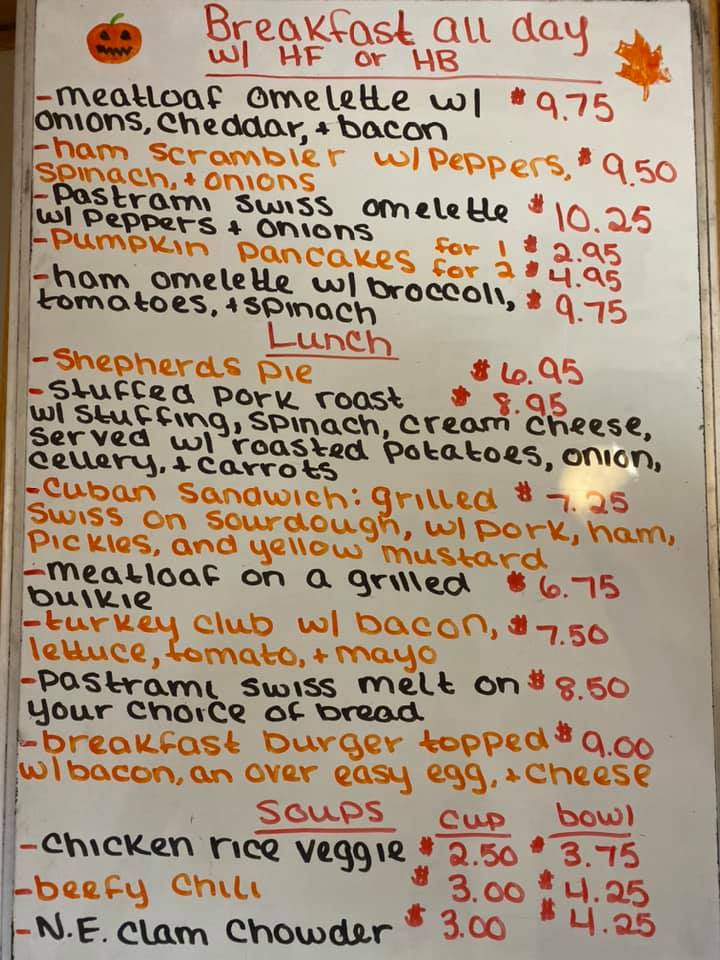 Breakfast all day
w/ HF or HB
-meatloaf omelette w/ $9.75
onions, cheddar, + bacon
-ham scrambler w/ peppers, $9.50
spinach, + onions
-Pastrami swiss omelette $10.25
w/ peppers + onions
-Pumpkin pancakes for 1 $2.95
for 2 $4.95
-ham omelette w/ broccoli, $9.75
tomatoes, + spinach
Lunch
-Shepherds pie $6.95
-stuffed pork roast $8.95
w/ stuffing, spinach, cream cheese,
served w/ roasted potatoes, onion,
cellery, + carrots
-Cuban sandwich: grilled $7.25
swiss on sourdough, w/ pork, ham,
pickles, and yellow mustard
-meatloaf on a grilled $6.75
bulkie
-turkey club w/ bacon, $7.50
lettuce, tomato, + mayo
-pastrami swiss melt on $8.50
your choice of bread
-breakfast burger topped $9.00
w/ bacon, an over easy egg, + cheese
Soups cup bowl
-chicken rice veggie $2.50 $3.75
-beefy chili $3.00 $4.25
-N.E. clam chowder $3.00 $4.25